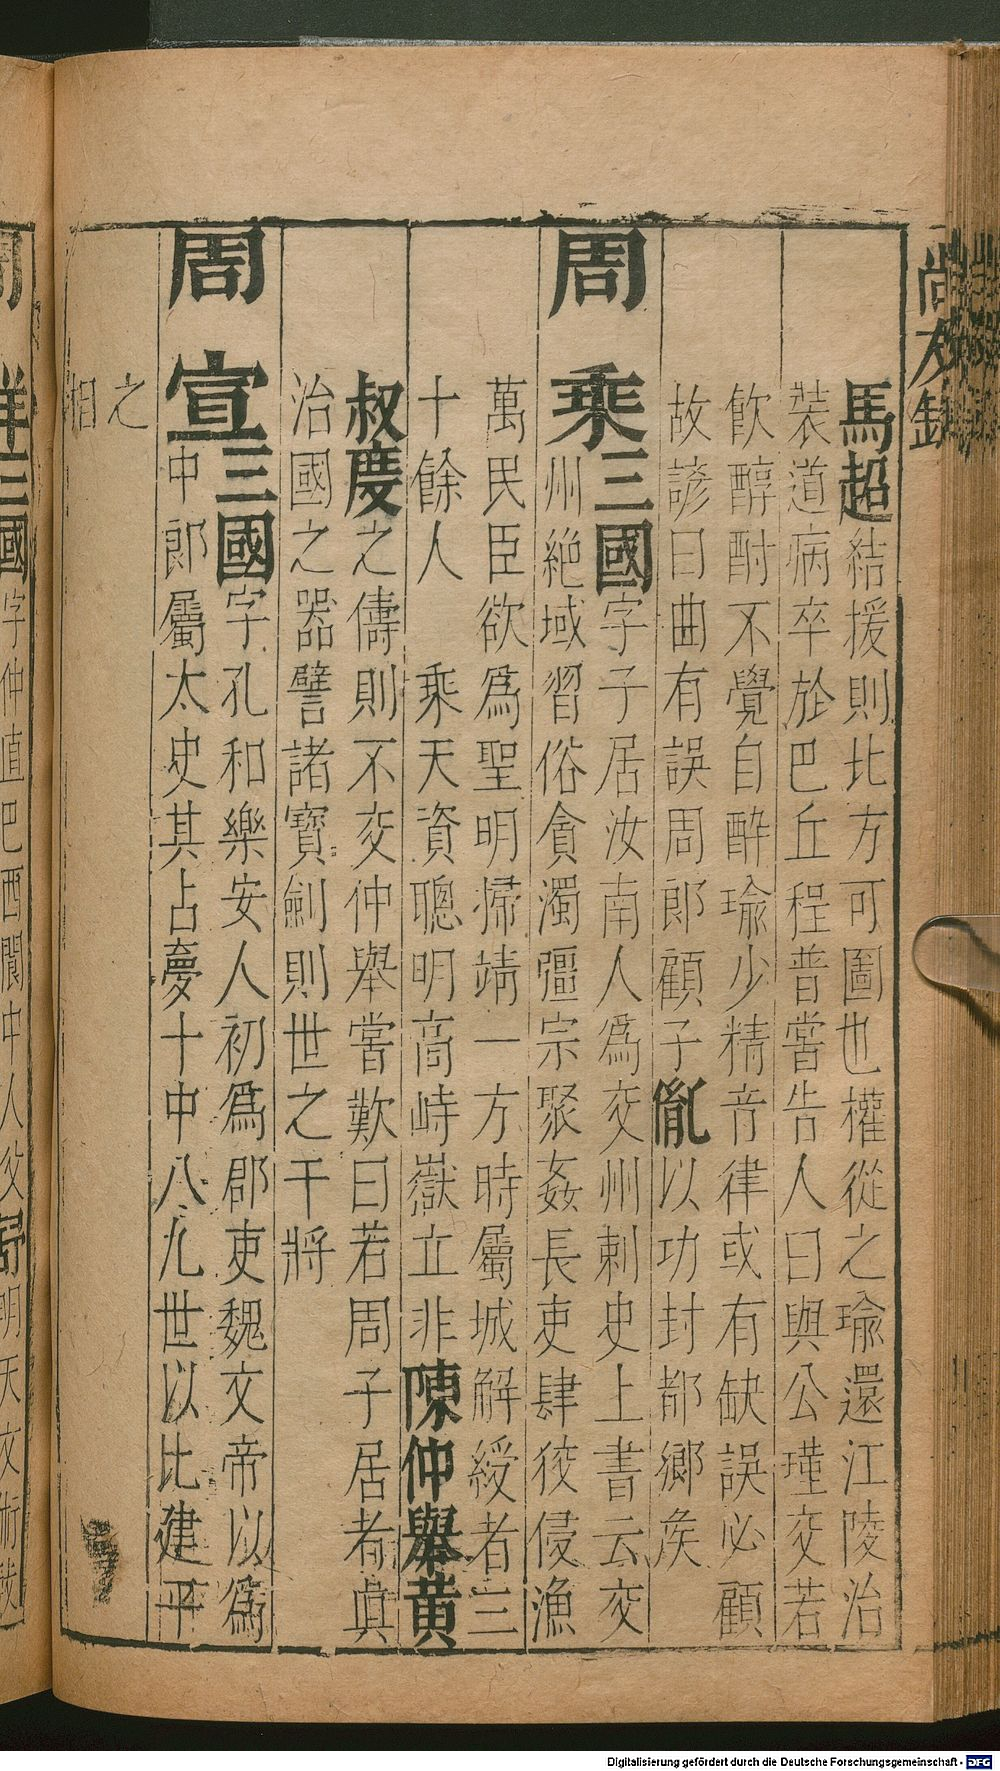 尚友錄
馬超結援則比方可圖也權從之瑜還江陵治
裝道病卒於巴丘程普嘗告人曰與公瑾交若
飲醇酎不覺自醉瑜少精音律或有缺誤必顧
故諺曰曲有誤周郎顧子胤以功封都鄉矦
周乘三國字子居汝南人爲交州剌史上書云交
州絶域習俗貪濁彊宗聚姦長吏肆狡侵漁
萬民臣欲爲聖明掃靖一方時屬城解綬者三
十餘人 乘天資聰明高峙嶽立非陳仲舉黄
叔度之儔則不交仲舉嘗歎曰若周子居者眞
治國之器譬諸寶劍則世之干將
周宣三國字孔和樂安人初爲郡吏魏文帝以爲
中郎屬太史其占夢十中八九世以比建平
之
相
祥三國字仲直巴西閬中人父舒明天文術
Digitalisierung gefördert durch die Deutsche Forschungsgemeinschaft - DFG